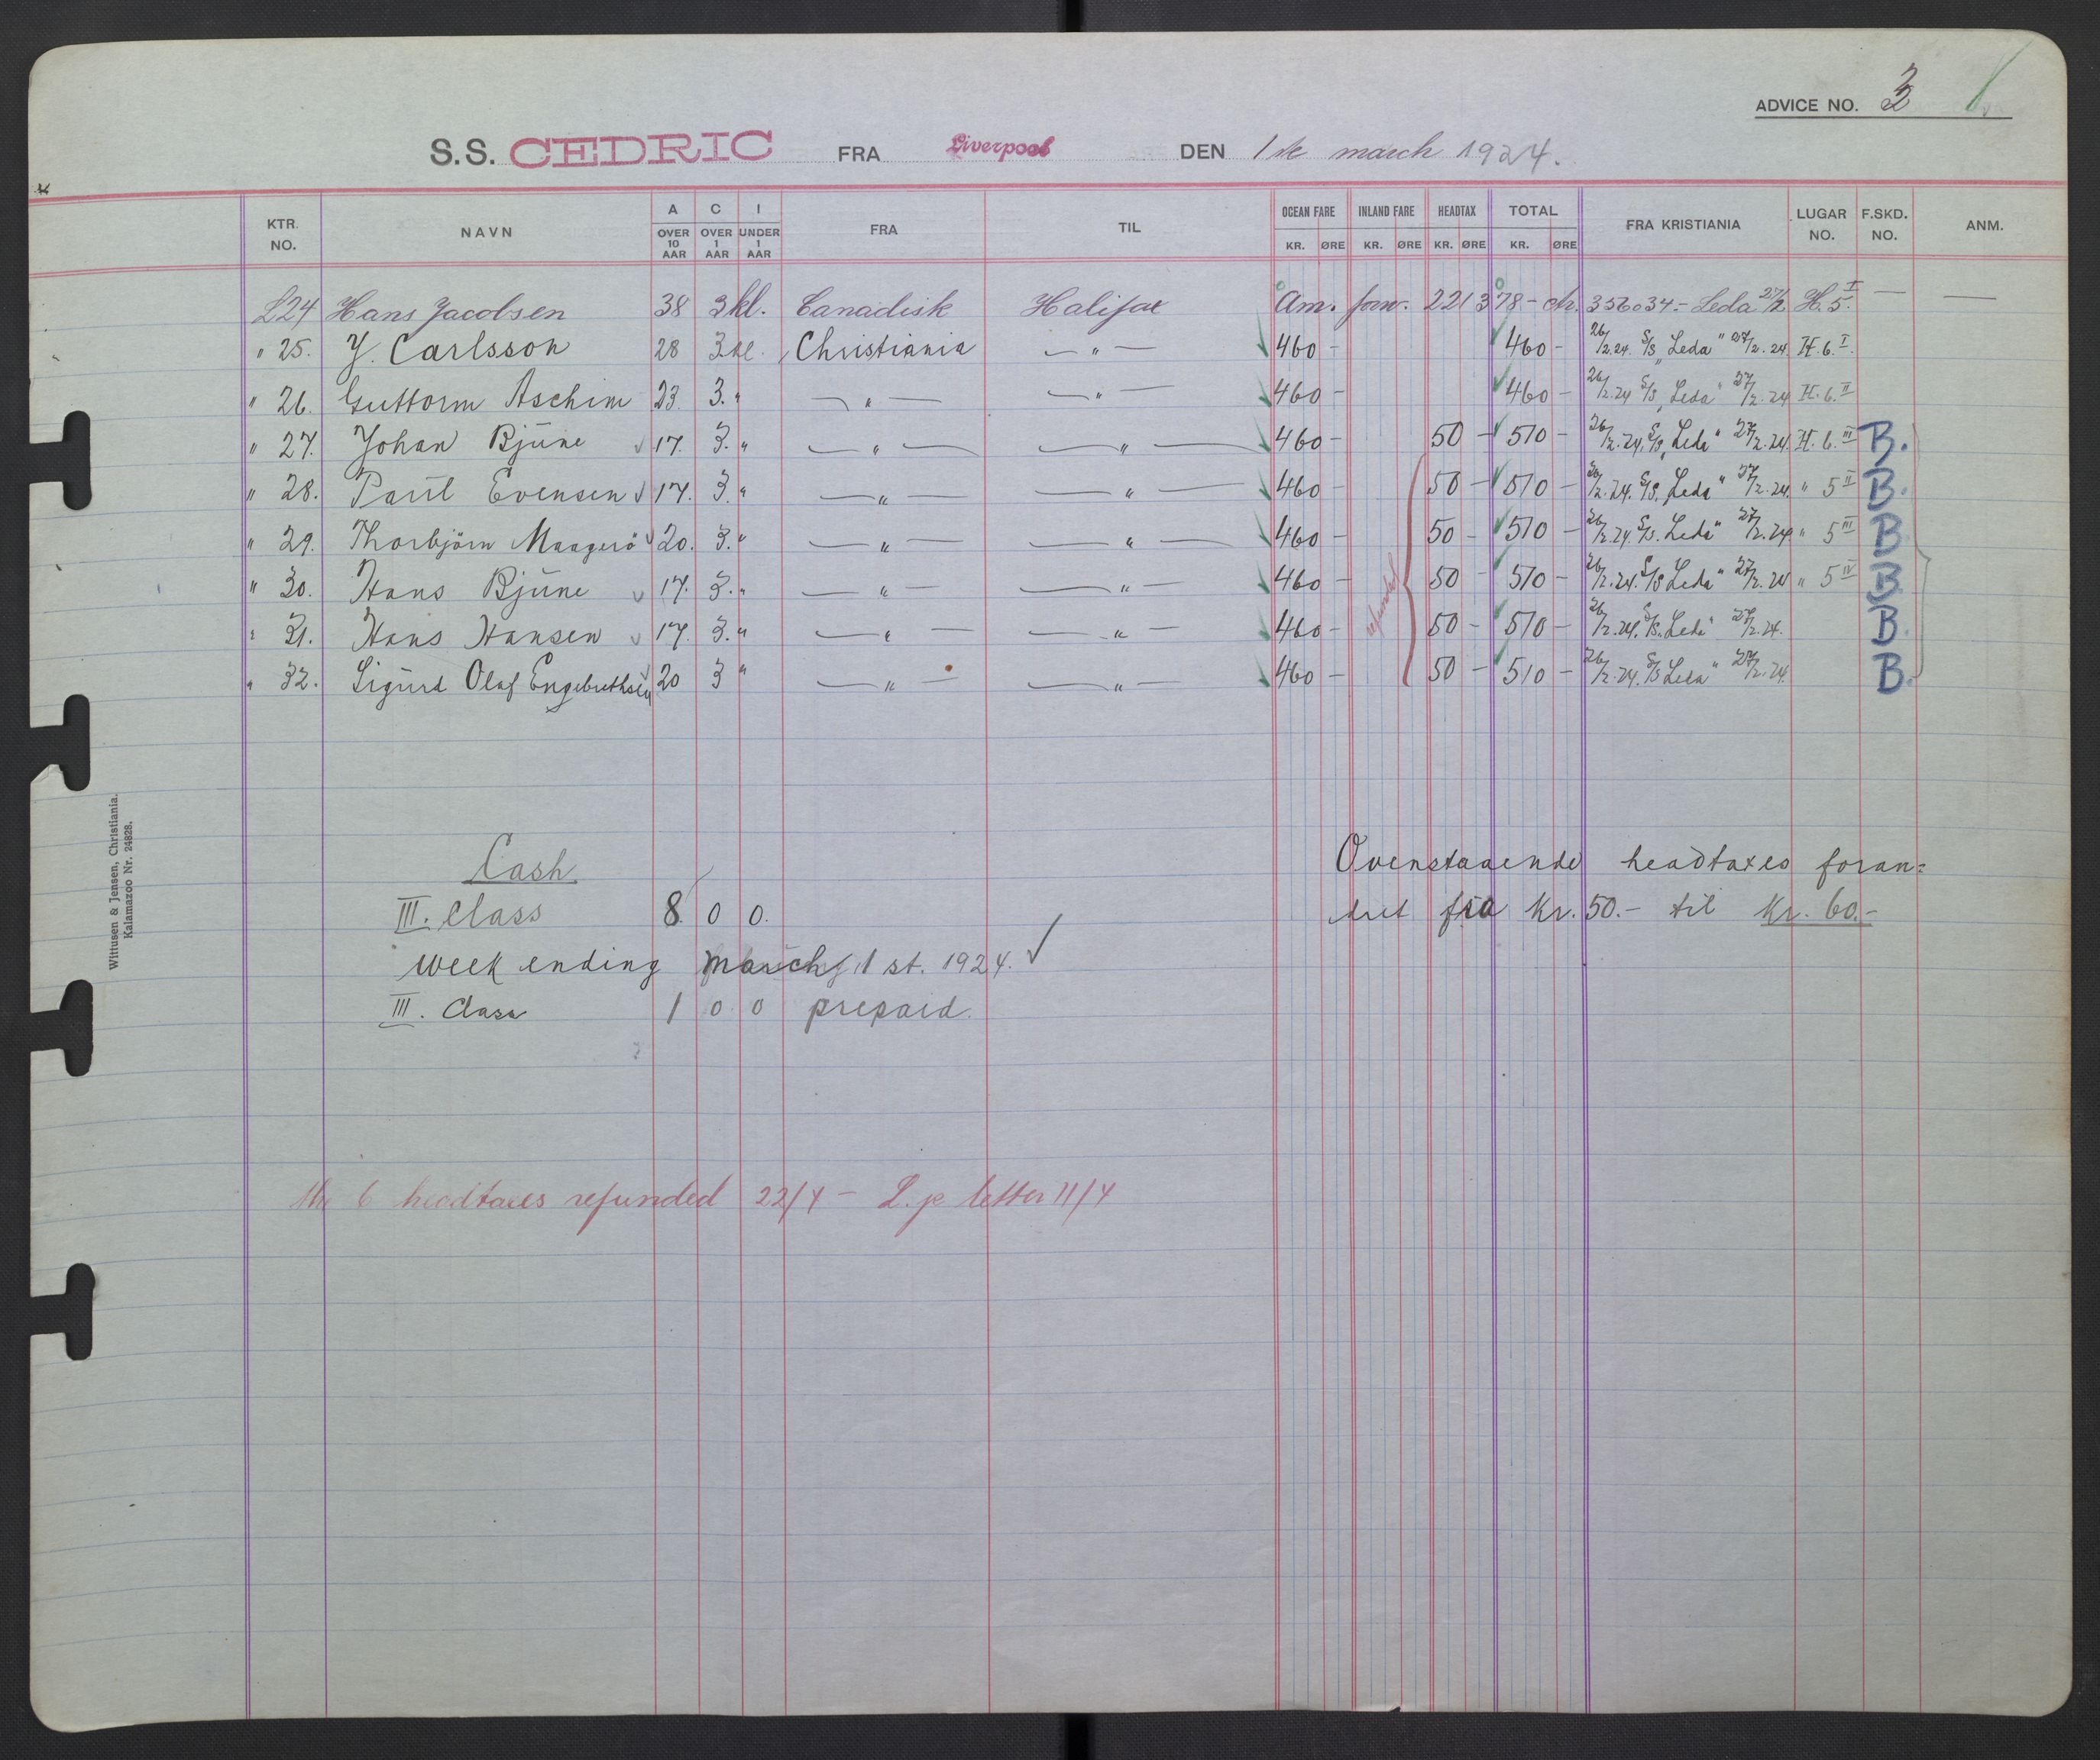 ADVICE NO. 3
S.S. CEDRIC FRA Liverpool DEN 1 de march 1924.
KTR. NO. NAVN A OVER 10 AAR C OVER 1 AAR I UNDER 1 AAR FRA TIL OCEAN FARE KR. ØRE INLAND FARE KR. ØRE HEADTAX KR. ØRE TOTAL KR. ØRE FRA KRISTIANIA LUGAR NO. F.SKD. NO. ANM.
L24 Hans Jacobsen 38 3 kl. Canadisk Halifax Am. forv. 221378 - ch. 356034.- Leda 27/2 H. 5. I — —
" 25. J. Carlsson 28 3 kl. Christiania — " — 460 - 460 - 26/2.24. S/S "Leda" 27/2.24. H. 6. I
" 26. Guttorm Aschim 23. 3. " — " — — " — 460 - 460 - 26/2.24 S/S "Leda" 27/2.24 H. 6. II
" 27. Johan Bjune 17. 3. " — " — — " — 460 - 50 - 510 - 26/2.24. S/S "Leda" 27/2.24. H. 6. III B.
" 28. Paul Evensen 17. 3. " — " — — " — 460 - 50 - 510 - 26/2.24. S/S. "Leda" 27/2.24. " 5 II B.
" 29. Thorbjörn Maagerö 20. 3. " — " — — " — 460 - 50 - 510 - 26/2.24. S/S. Leda" 27/2.24 " 5 III B
" 30. Hans Bjune 17. 3. " — " — — " — 460 - 50 - 510 - 26/2.24. S/S Leda" 27/2.24 " 5 IV B.
" 31. Hans Hansen 17. 3. " — " — — " — 460 - 50 - 510 - 26/2.24. S/S. Leda" 27/2.24. B.
" 32. Sigurd Olaf Engebrethsen 20 3 " — " — — " — 460 - 50 - 510 - 26/2.24. S/S Leda" 27/2.24. B.
refunded
Cash.
III. Class 8 0 0.
week ending march 1 st. 1924.
III. Class 1 0 0 prepaid.
Ovenstaaende headtaxes foran=
dret fra Kr. 50.- til Kr. 60.-
the 6 headtaxes refunded 22/4 - L. p letter 11/4
Wittusen & Jensen, Christiania.
Kalamazoo Nr. 24828.